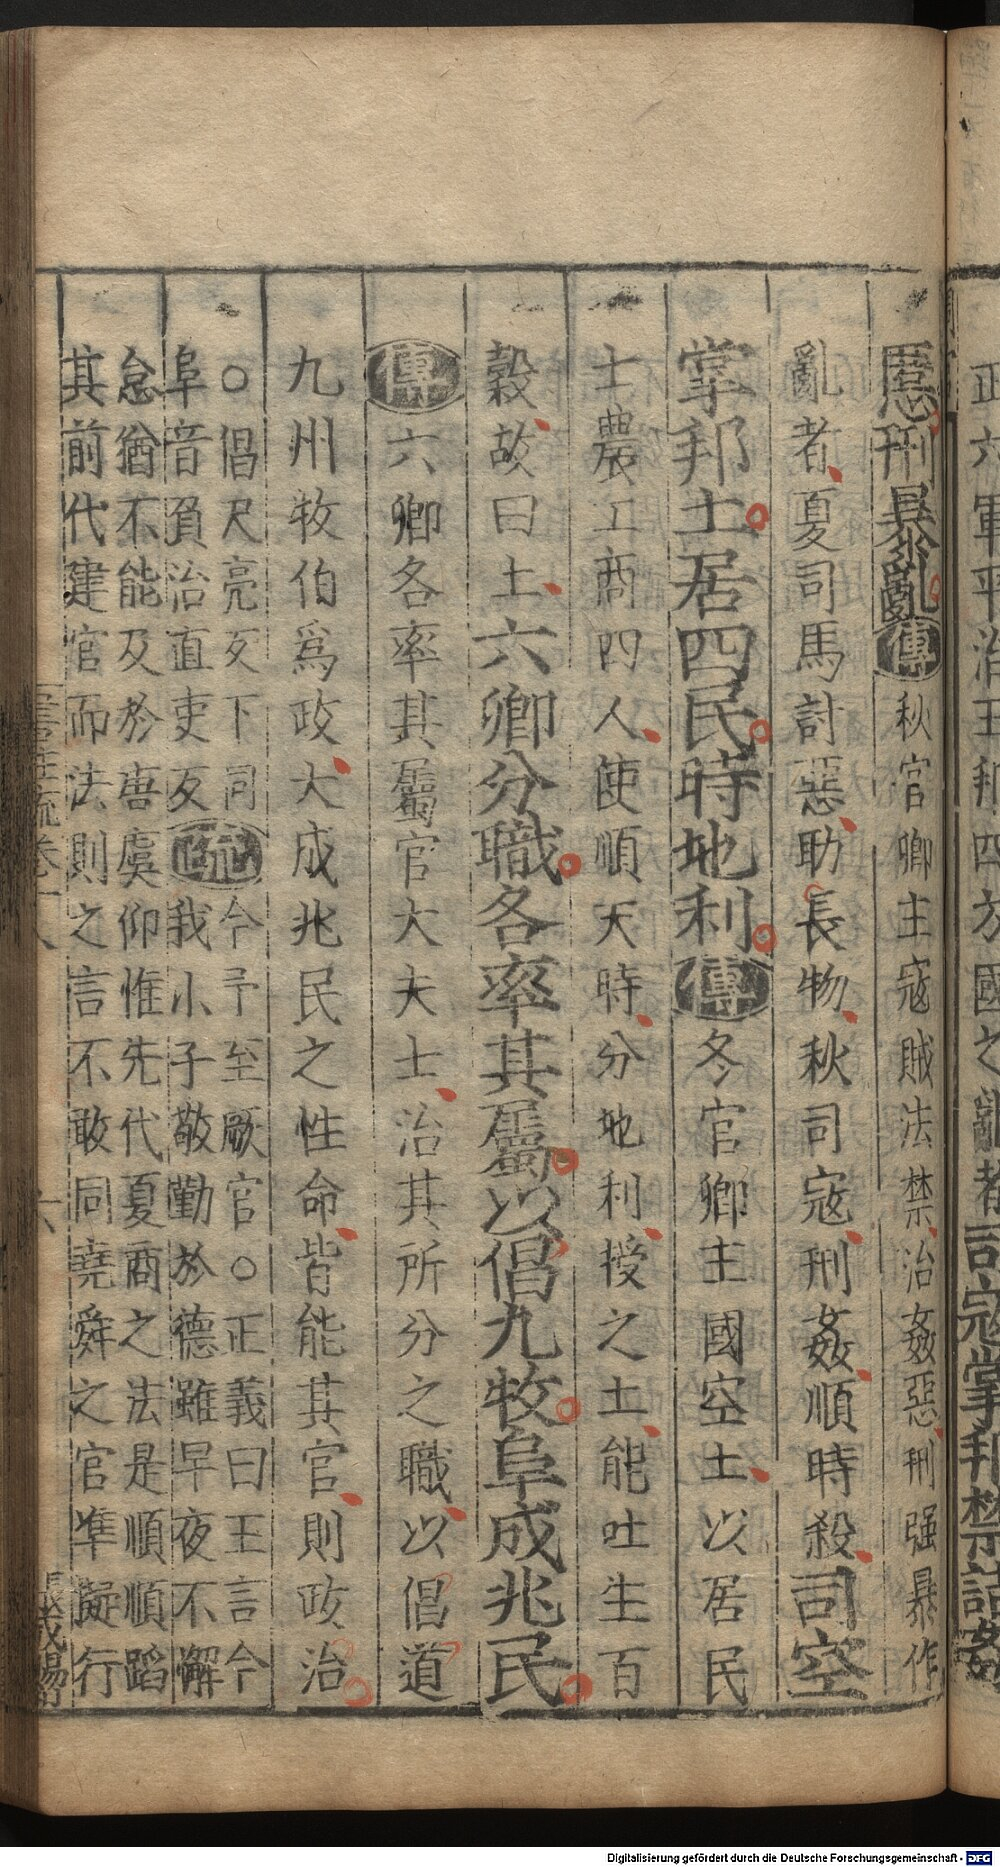 正六軍平治王邦四方國之亂者司寇掌邦禁詰姦
慝刑暴亂傳秋官卿主寇賊法禁治姦惡刑强暴作
亂者夏司馬討惡助長物秋司寇刑姦順時殺司空
掌邦土居四民時地利傳冬官卿主國空土以居民
士農工商四人使順天時分地利授之土能吐生百
穀故曰土六卿分職各率其屬以倡九牧阜成兆民
傳六卿各率其屬官大夫士治其所分之職以倡道
九州牧伯爲政大成兆民之性命皆能其官則政治
○倡尺亮反下同
阜音負治直吏反
疏
今予至厥官○正義曰王言今
我小子敬勤於德雖早夜不懈
怠猶不能及於唐虞仰惟先代夏商之法是順順蹈
其前代建官而法則之言不敢同堯舜之官凖擬行
書注疏卷十八
六
Digitalisierung gefördert durch die Deutsche Forschungsgemeinschaft - DFG